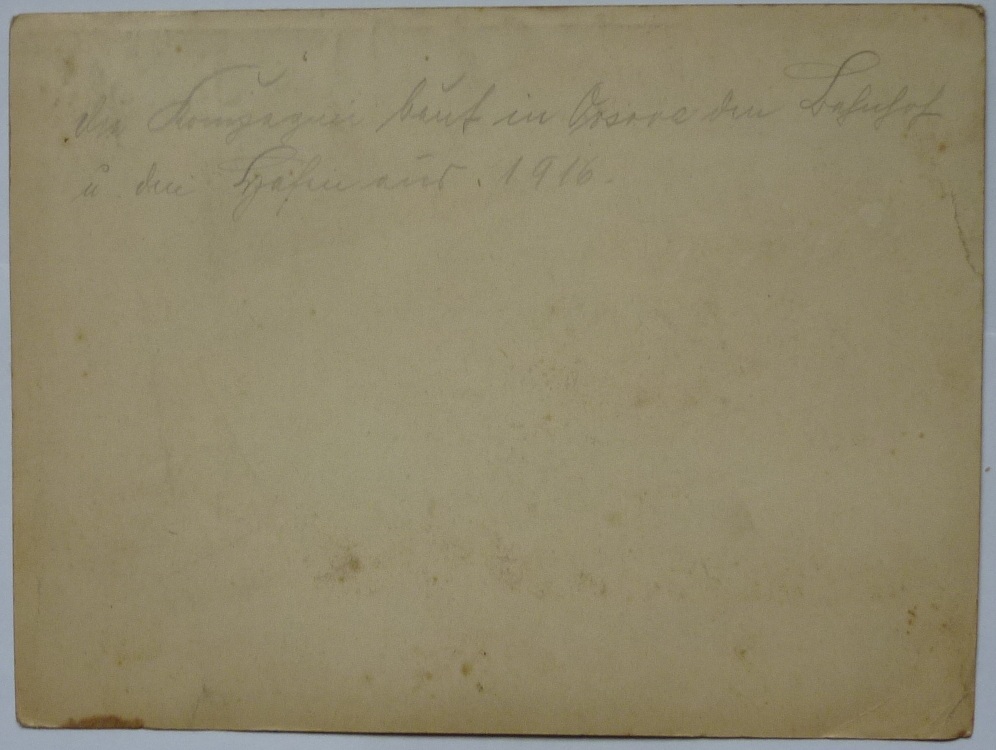 die Kompagnie baut in Orsova den Bahnhof
u. den Hafen aus. 1916.